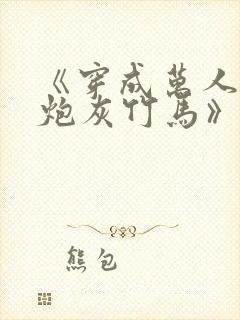 《穿成萬人
炮灰竹馬》
熊包